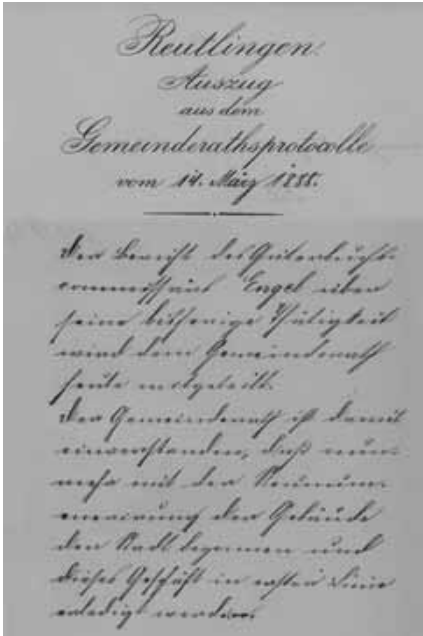 Reutlingen.
Auszug
aus dem
Gemeinderathsprotocolle
vom 14. März 1888.
Der Bericht des Güterbuchs-
commissärs Engel über
seine bisherige Thätigkeit
wird dem Gemeinderath
heute mitgeteilt.
Der Gemeinderath ist damit
einverstanden, daß nun-
mehr mit der Neunum-
merirung der Gebäude
der Stadt begonnen und
dieses Geschäft in erster Linie
erledigt werde.